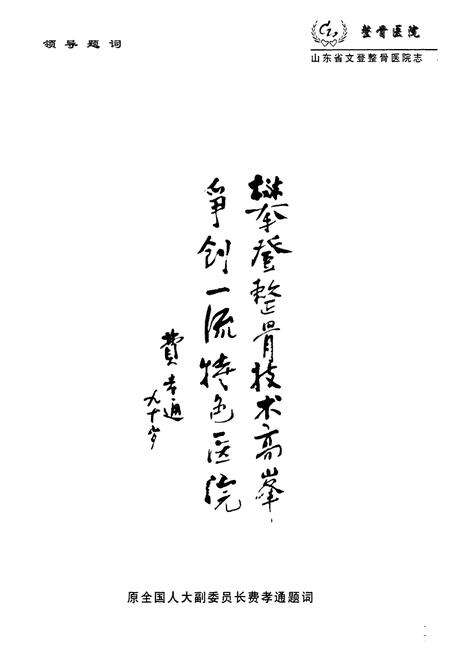 领导题词
整骨医院
山东省文登整骨医院志
攀登整骨技术高峰
争创一流特色医院
费孝通
九十岁
原全国人大副委员长费孝通题词